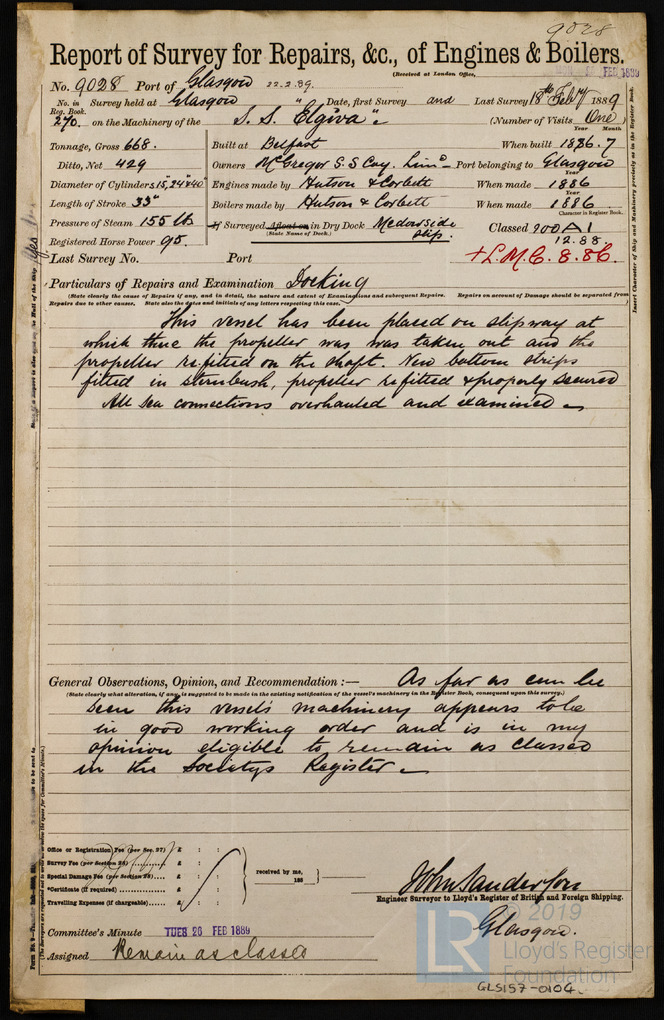 9028
Report of Survey for Repairs, &c., of Engines & Boilers.
(Received at London Office, FEB 1889
No. 9028 Port of Glasgow 22.2.89.
No. in Reg. Book. Survey held at Glasgow Date, first Survey and Last Survey 18th Feby 1889
270. on the Machinery of the S. S. "Elgiva" (Number of Visits One)
Tonnage, Gross 668. Built at Belfast When built 1886.7
Year Month
Ditto, Net 429 Owners McGregor S.S Coy. Limd Port belonging to Glasgow
Diameter of Cylinders 15, 24 & 40" Engines made by Hutson & Corbett When made 1886
Year
Length of Stroke 33" Boilers made by Hutson & Corbett When made 1886
Year
Pressure of Steam 155 lbs If Surveyed Afloat or in Dry Dock Meadowside Slip. Classed 100 A1
Character in Register Book.
(State Name of Dock.)
12.88
Registered Horse Power 95.
Last Survey No. Port + L.M.C. 8.86.
Particulars of Repairs and Examination Docking
(State clearly the cause of Repairs if any, and in detail, the nature and extent of Examinations and subsequent Repairs. Repairs on account of Damage should be separated from
Repairs due to other causes. State also the dates and initials of any letters respecting this case.)
This vessel has been placed on slipway at
which time the propeller was was taken out and the
propeller refitted on the shaft. New bottom strips
fitted in sternbush, propeller refitted & properly secured
All sea connections overhauled and examined
General Observations, Opinion, and Recommendation :— As far as can be
(State clearly what alteration, if any, is suggested to be made in the existing notification of the vessel's machinery in the Register Book, consequent upon this survey.)
seen this vessel's machinery appears to be
in good working order and is in my
opinion eligible to remain as classed
in the Societys Register
Office or Registration Fee (per Sec. 27) £ : :
Survey Fee (per Section 28) £ : :
Special Damage Fee (per Section 28) £ : :
Certificate (if required) £ : :
Travelling Expenses (if chargeable) £ : :
received by me,
188
John Sanderson
Engineer Surveyor to Lloyd's Register of British and Foreign Shipping.
Glasgow.
Committee's Minute TUES 26 FEB 1889
Assigned Remain as classed
Insert Character of Ship and Machinery precisely as in the Register Book.
Yes
© 2019
LR
Lloyd's Register
Foundation
GLS157-0104